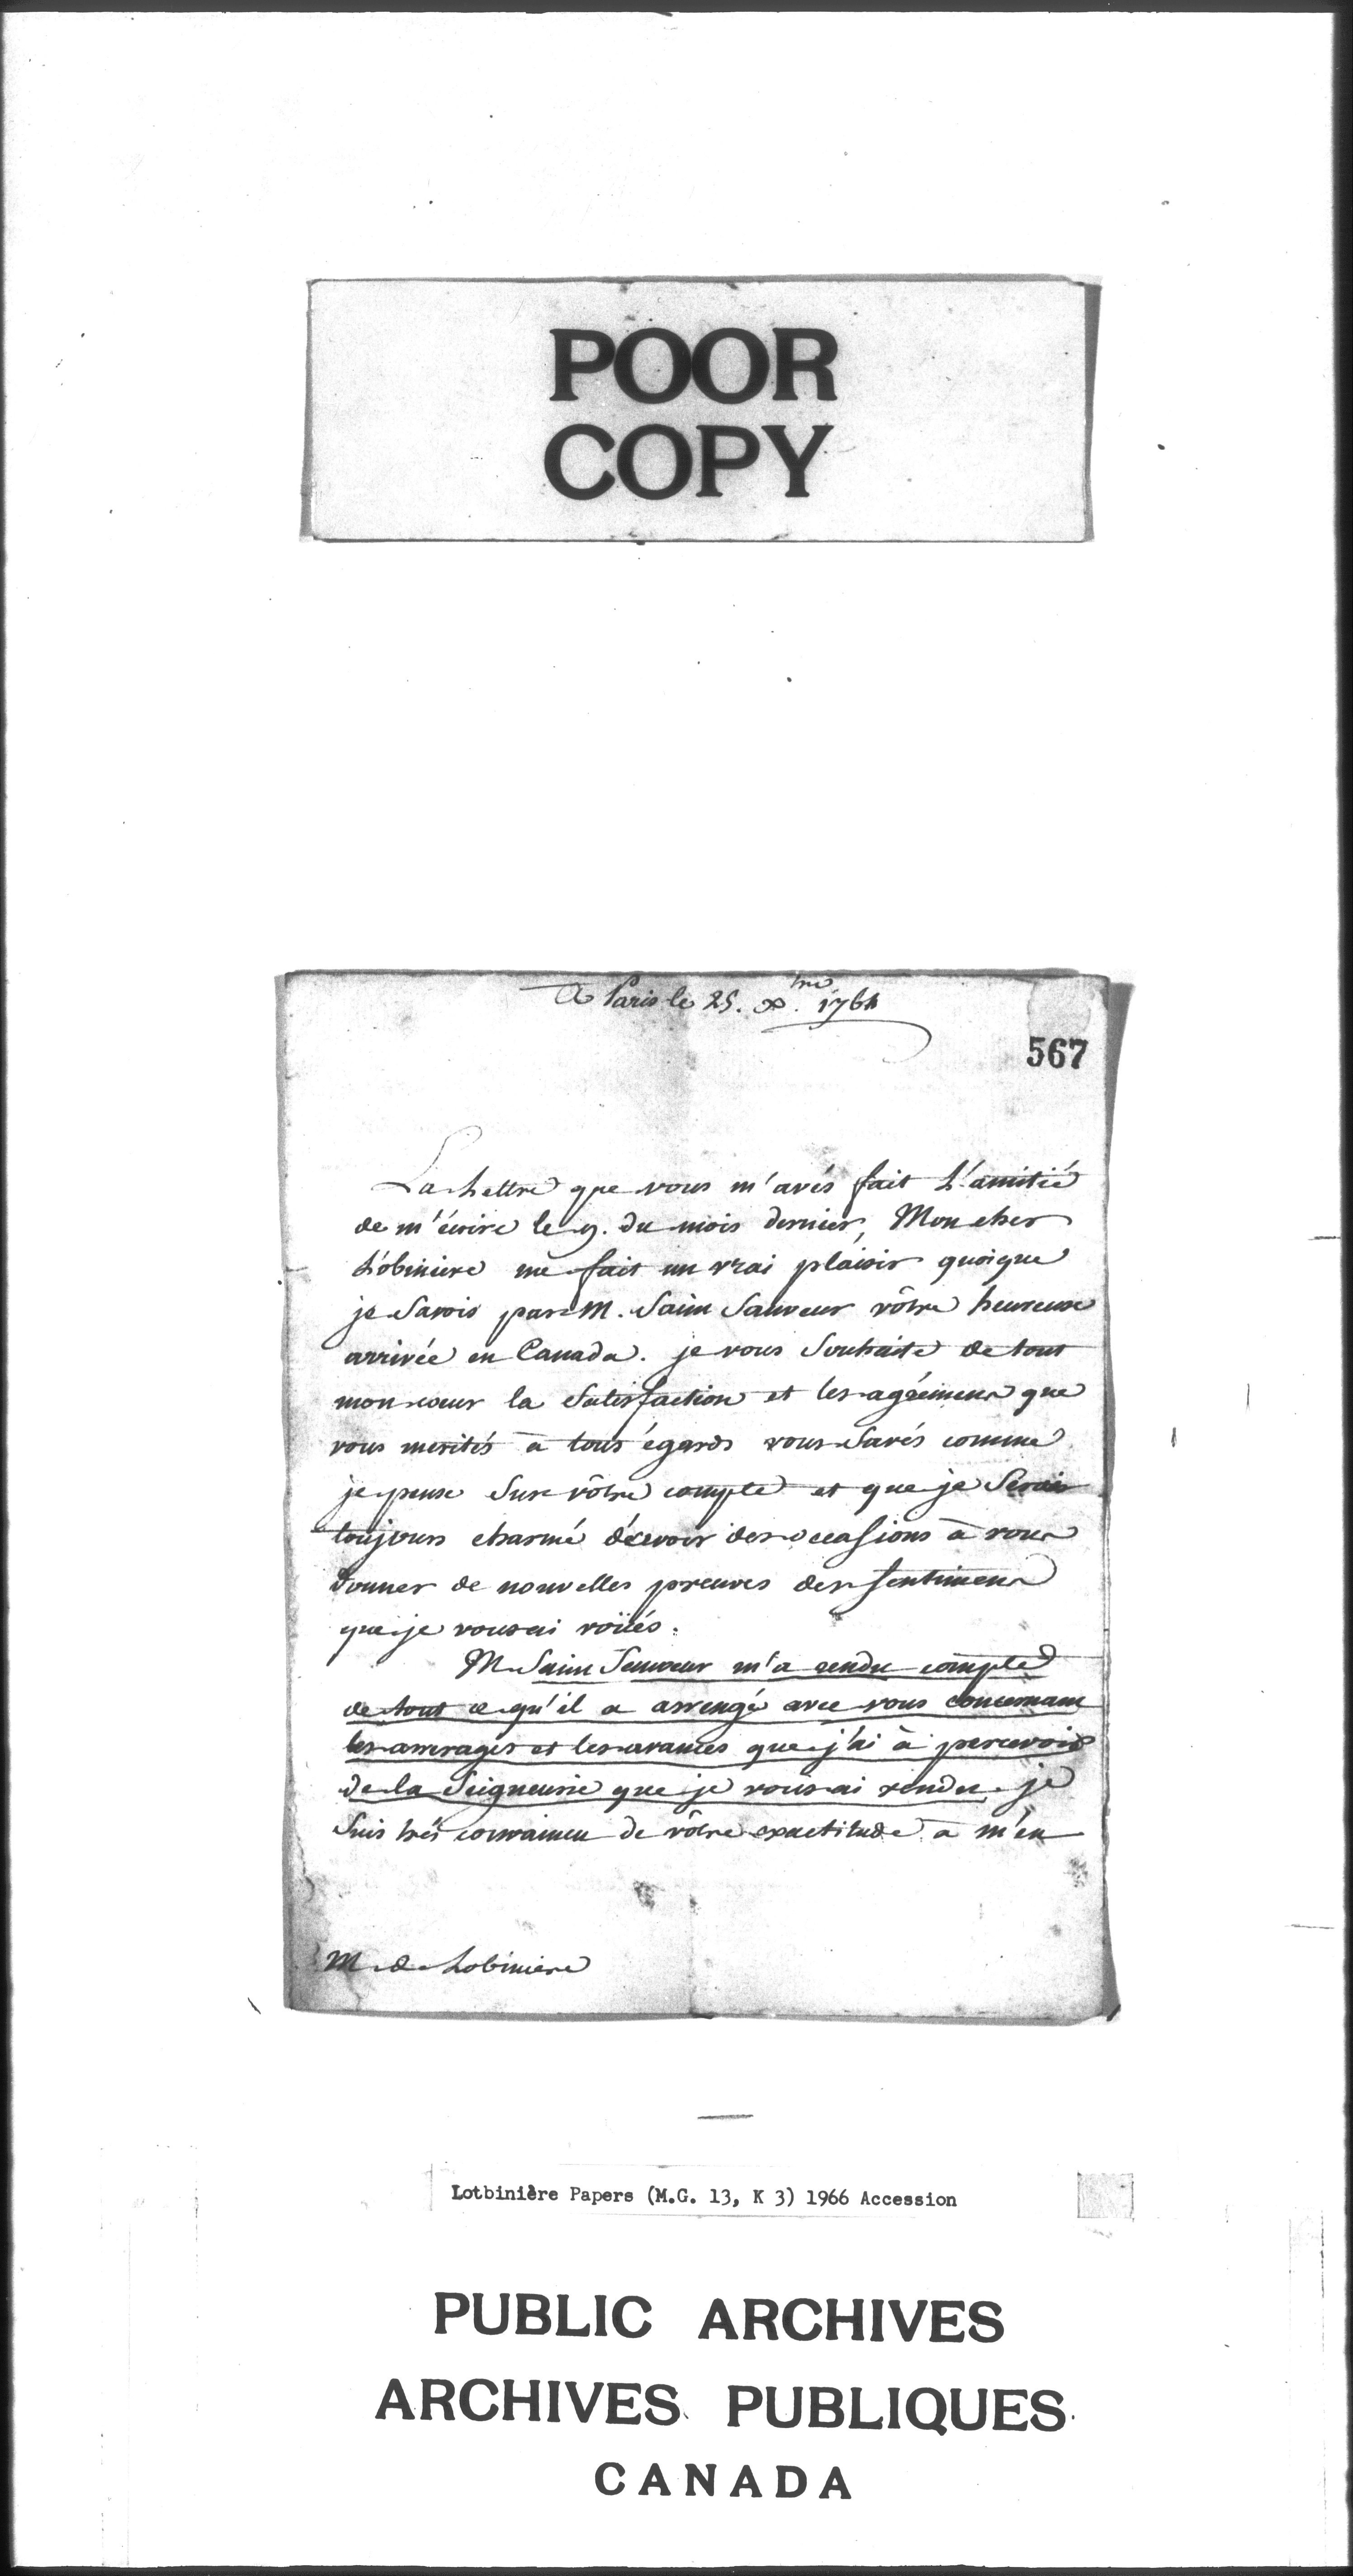 POOR
COPY
A Paris le 25. Xbre. 1764
567
La Lettre que vous m'avés fait L'amitié
de m'écrire le 9. du mois dernier, Mon cher
Lobiniere me fait un vrai plaisir quoique
je Savois par M. Saint Sauveur vôtre heureuse
arrivée en Canada. je vous Souhaite de tout
mon coeur la Satisfaction et les agrémens que
vous merités à tous égards vous Savés comme
je pense Sur vôtre compte et que je Serai
toujours charmé d'avoir des occasions à vous
donner de nouvelles preuves des Sentimens
que je vous ai voüés.
M Saint Sauveur m'a rendu compte
de tout ce qu'il a arrengé avec vous concernant
les arrerages et les avances que j'ai à percevoir
de la Seigneurie que je vous ai vendu. je
Suis très convaincu de vôtre exactitude à m'en
M. de Lobiniere
Lotbinière Papers (M.G. 13, K 3) 1966 Accession
PUBLIC ARCHIVES
ARCHIVES PUBLIQUES
CANADA